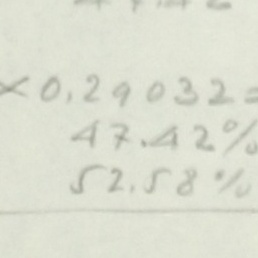 ×0.29032=
47.42%
52.58%